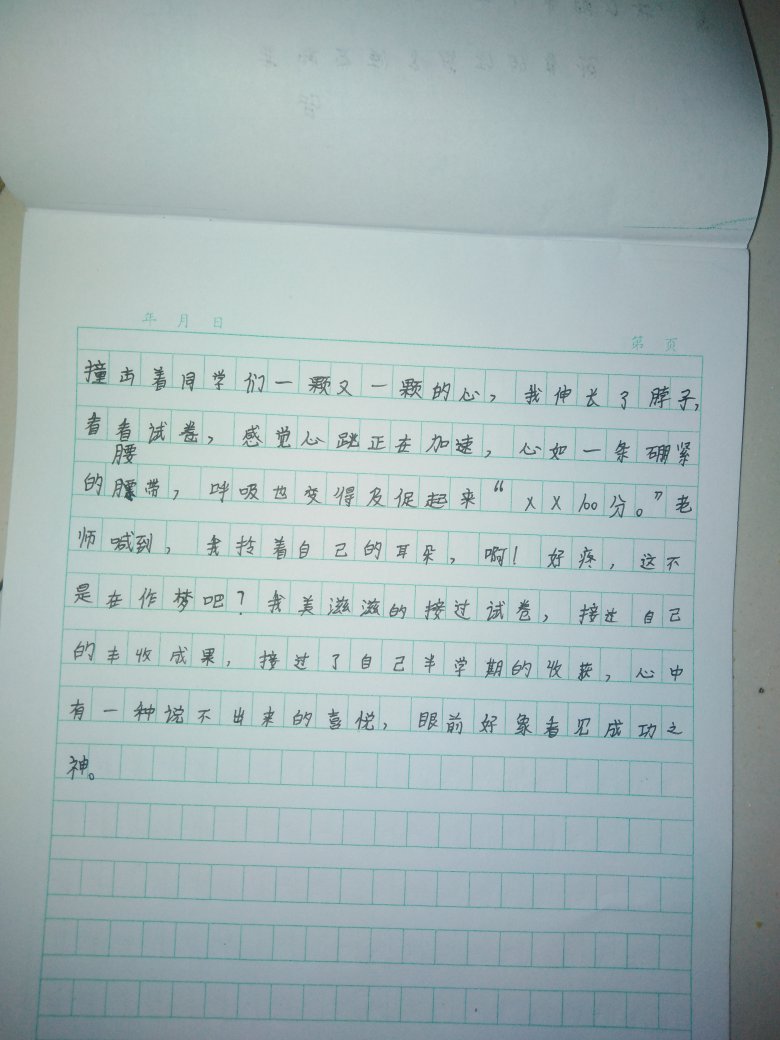 年 月 日
第 页
撞击着同学们一颗又一颗的心，我伸长了脖子，
看看试卷，感觉心跳正在加速，心如一条硼紧
腰
的腰带，呼吸也变得及促起来“XX100分。”老
师喊到，我拎着自己的耳朵，啊！好疼，这不
是在作梦吧？我美滋滋的接过试卷，接过自己
的丰收成果，接过了自己半学期的收获，心中
有一种说不出来的喜悦，眼前好象看见成功之
神。